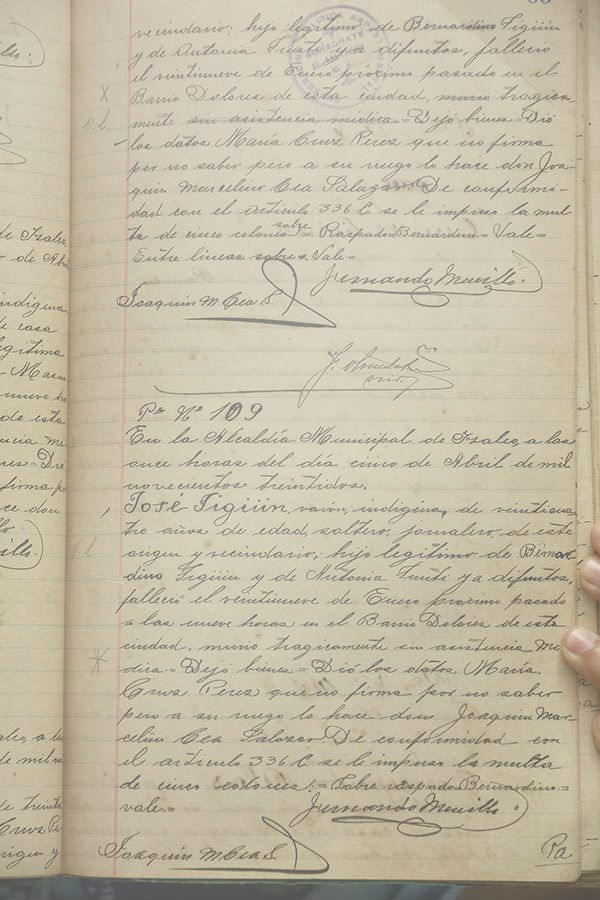 vecindario; hijo legítimo de Bernardino Tigüiin
y de Antonia ya difuntos, falleció
el veintinueve de Enero próximo pasado en el
Barrio Dolores de esta ciudad, murio tragica-
mente sin asistencia médica = Dejó bienes = Dió
los datos María Cruz Perez que no firma
por no saber pero a su ruego lo hace don Joa-
quin Marcelino Cea Salazar. De conformi-
dad con el artículo 336 C. se le impuso la mul-
ta de cinco colones = sobre = Raspado = Bernardino = Vale =
Entre lineas sobre = Vale =
Fernando Murillo.
Joaquin M. Cea S.
srio.
Pa. No. 109
En la Alcaldía Municipal de Izalco, a las
once horas del día cinco de Abril de mil
novecientos treintidos.
José Tigüiin, varón, indigena, de veinticua-
tro años de edad, soltero, jornalero de este
origen y vecindario; hijo legitimo de Bernar-
dino Tigüiin y de Antonia ya difuntos,
falleció el veintinueve de Enero proximo pasado
a las nueve horas en el Barrio Dolores de esta
ciudad, murio tragicamente sin asistencia mé-
dica = Dejó bienes = Dió los datos María
Cruz Perez que no firma por no saber
pero a su ruego lo hace don Joaquin Mar-
celino Cea Salazar. De conformidad con
el artículo 336 C. se le impuso la multa
de cinco colones. = Sobre raspado = Bernardino =
vale. =
Fernando Murillo.
Joaquin M. Cea S.
Pa